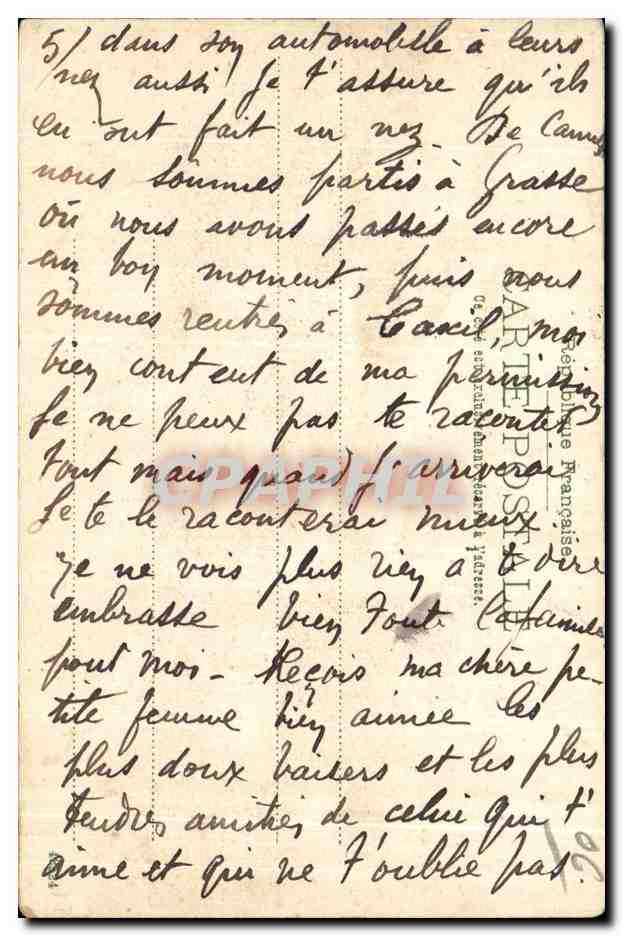 5/ dans son automobile à leurs
nez aussi je t'assure qu'ils
en ont fait un nez. De Cannes
nous sommes partis à Grasse
où nous avons passés encore
un bon moment, puis nous
sommes rentrés à moi
bien content de ma permission
Je ne peux pas te raconter
tout mais quand j'arriverai
Je te le raconterai mieux.
Je ne vois plus rien a te dire
embrasse bien toute la famille
pour moi - Reçois ma chère pe-
tite femme bien aimée les
plus doux baisers et les plus
tendres amitiés de celui qui t'
aime et qui ne t'oublie pas.
République Française
CARTE POSTALE
Ce côté est exclusivement réservé à l'adresse.
CPAPHIL
20